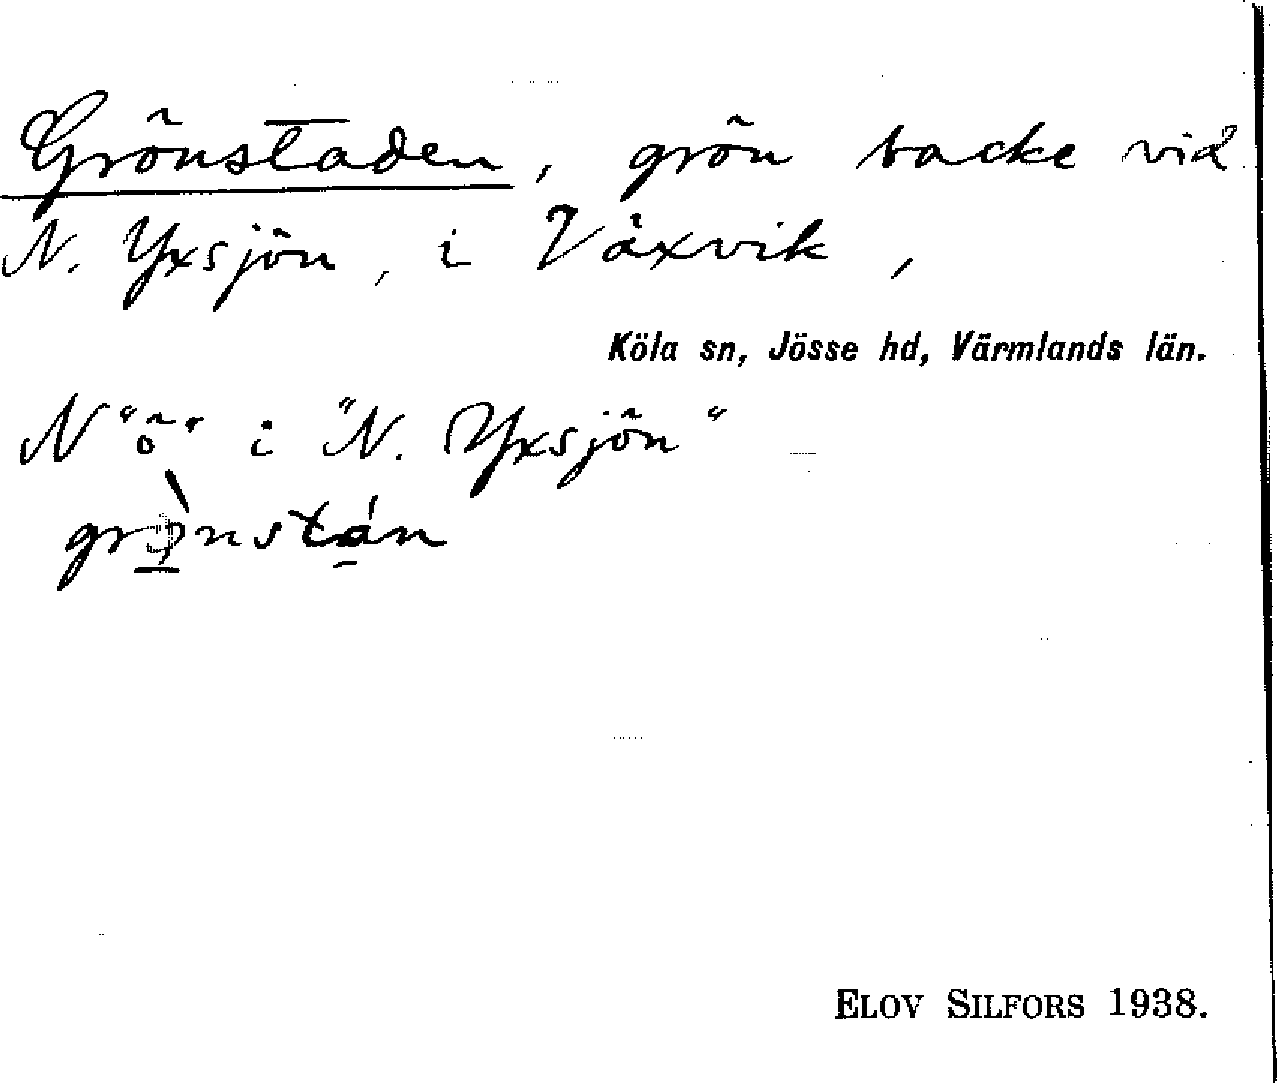 Grönstaden, grön backe vid
N. Yxsjön, i Växvik,
Köla sn, Jösse hd, Värmlands län.
N "ö" i "N. Yxsjön"
ELOV SILFORS 1938.